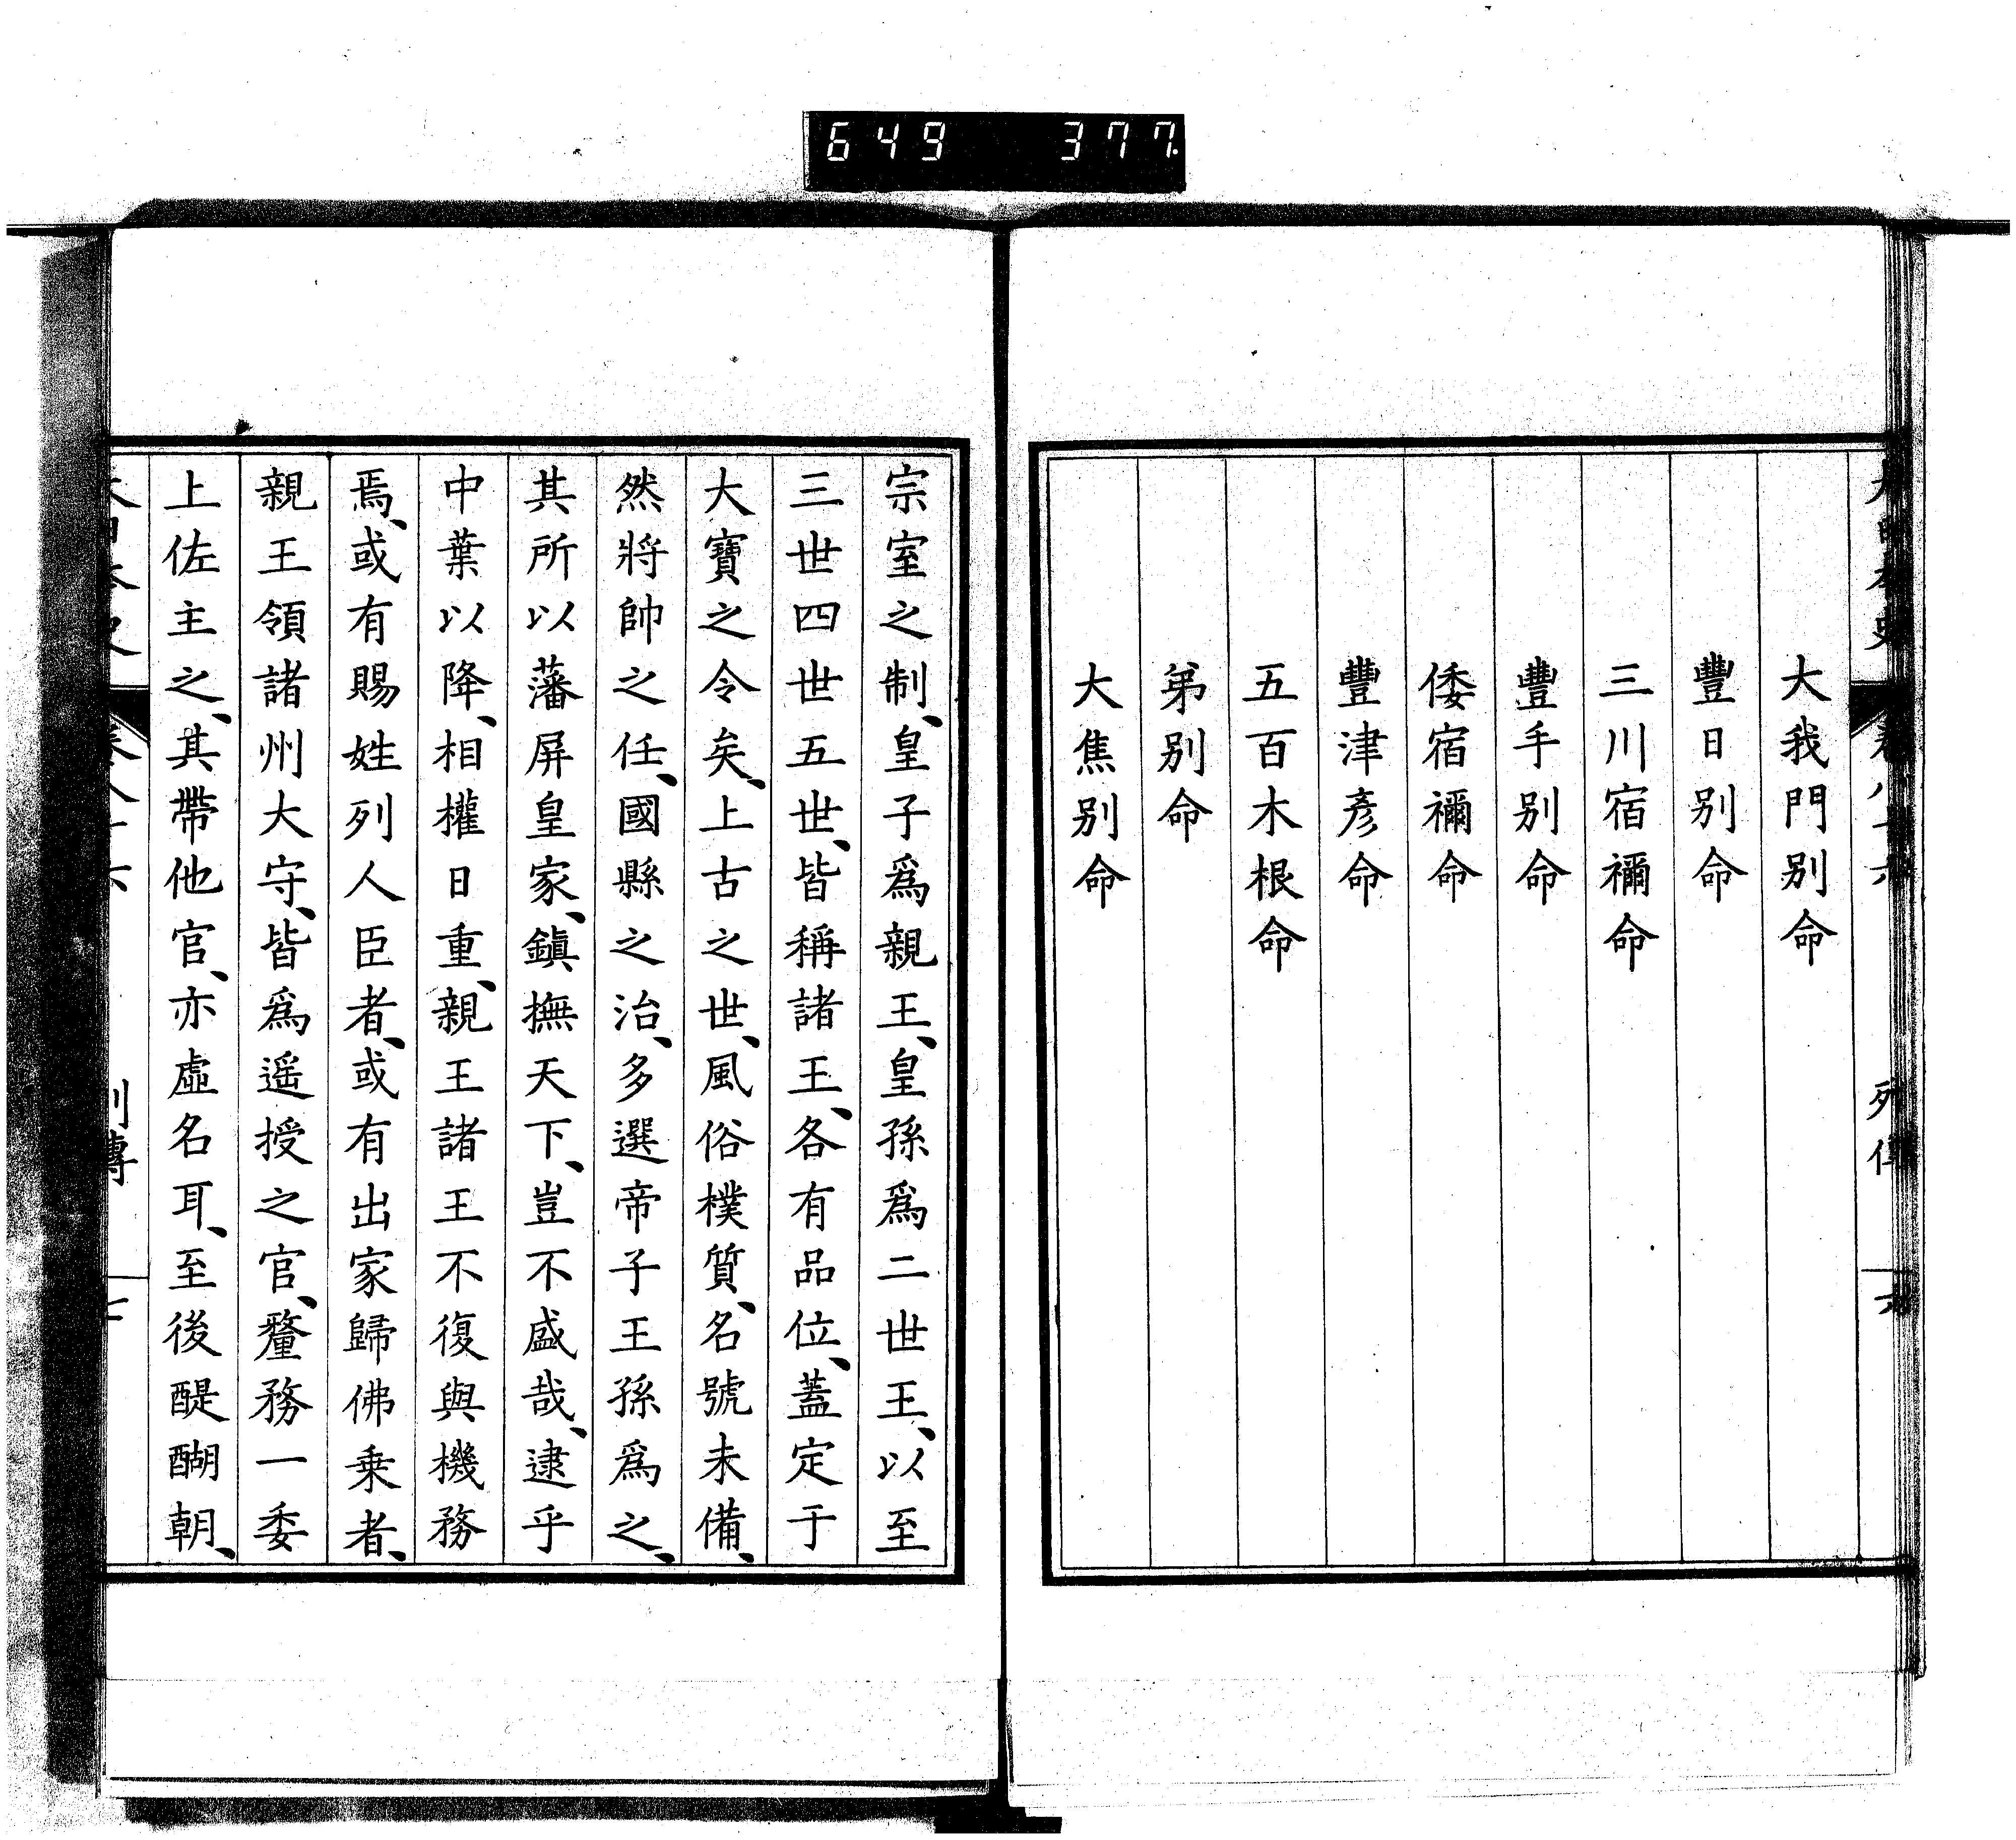 649 377.
大我門別命
豐日別命
三川宿禰命
豐手別命
倭宿禰命
豐津彥命
五百木根命
弟別命
大焦別命
宗室之制、皇子爲親王、皇孫爲二世王、以至
三世四世五世、皆稱諸王、各有品位、蓋定于
大寶之令矣、上古之世、風俗樸質、名號未備、
然將帥之任、國縣之治、多選帝子王孫爲之、
其所以藩屏皇家、鎮撫天下、豈不盛哉、逮乎
中葉以降、相權日重、親王諸王不復與機務
焉、或有賜姓列人臣者、或有出家歸佛乘者、
親王領諸州大守、皆爲遥授之官、釐務一委
上佐主之、其帶他官、亦虛名耳、至後醍醐朝、